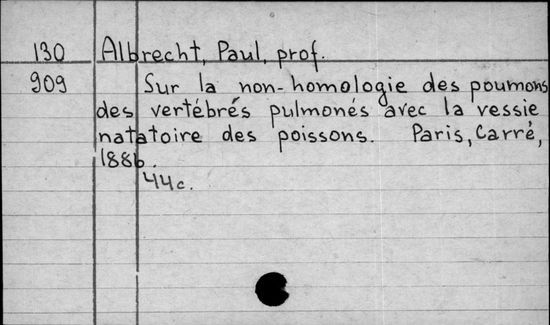 130 Albrecht, Paul, prof.
909 Sur la non-homologie des poumons
des vertébrés pulmonés avec la vessie
natatoire des poissons. Paris, Carré,
1886.
44c.